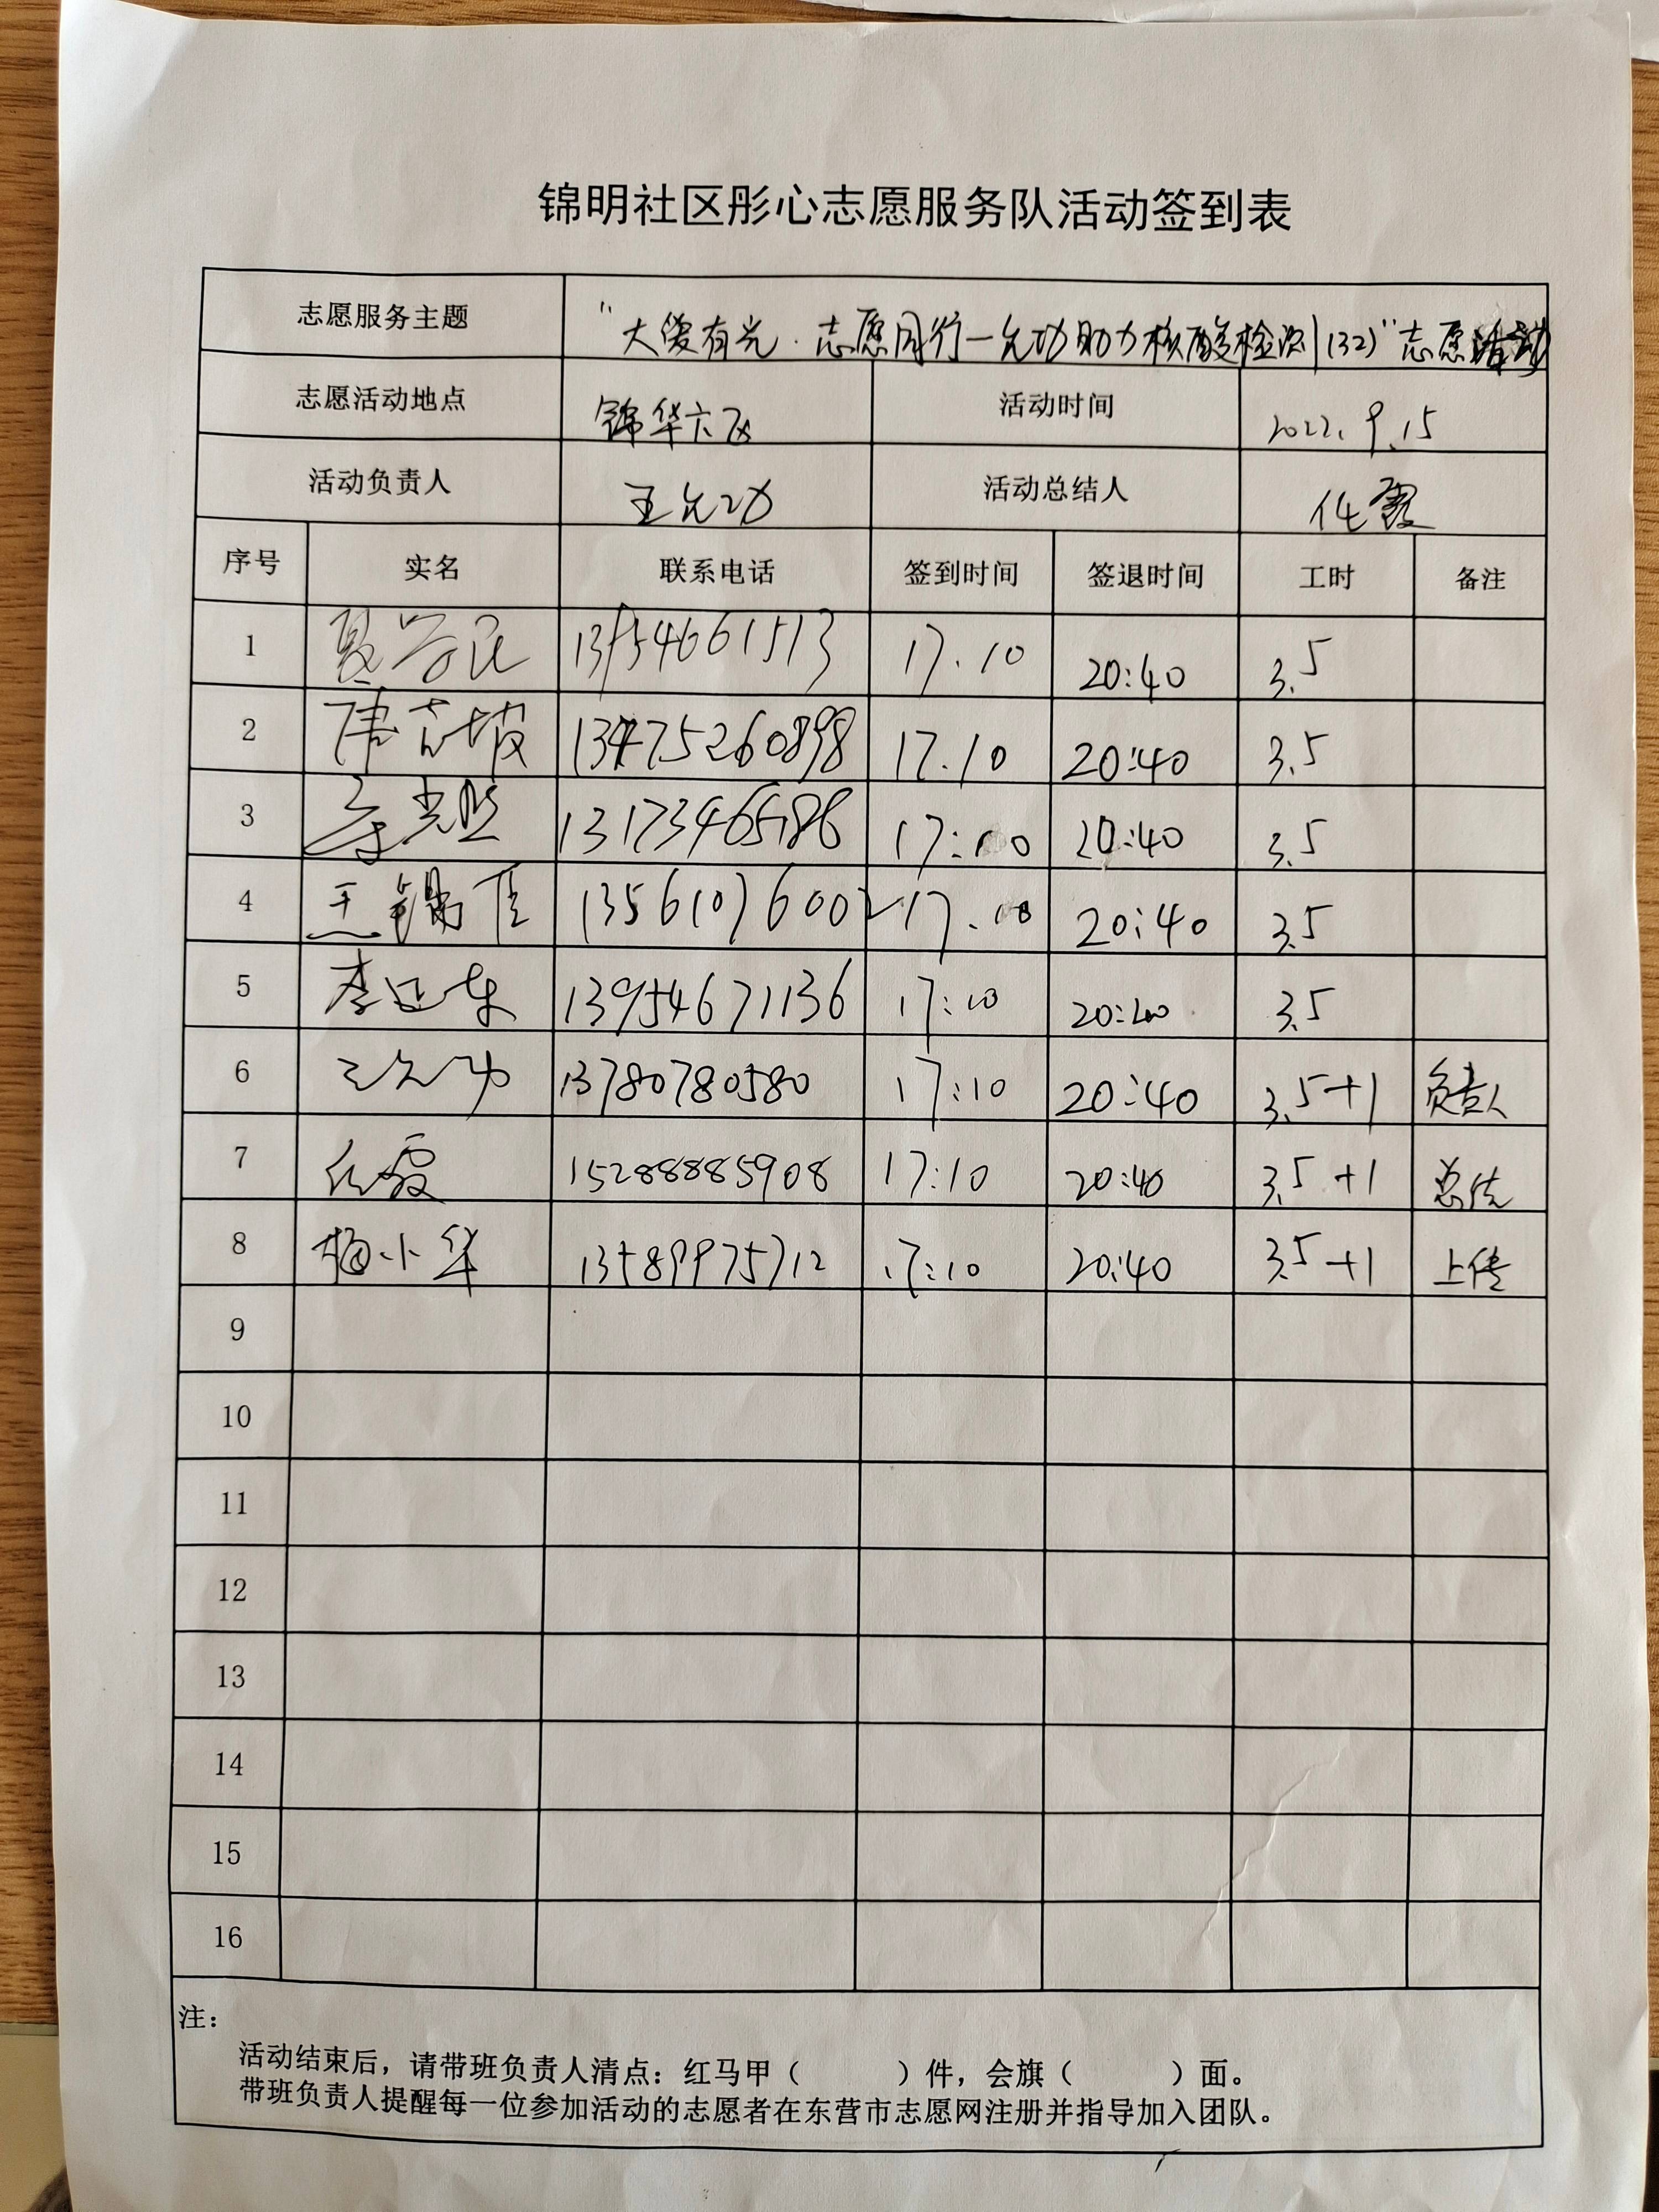 锦明社区彤心志愿服务队活动签到表
志愿服务主题 "大爱有光·志愿同行—允功助力核酸检测(132)"志愿活动
志愿活动地点 锦华六区 活动时间 2022.9.15
活动负责人 王允功 活动总结人 任霞
序号 实名 联系电话 签到时间 签退时间 工时 备注
1 13954661513 17.10 20:40 3.5
2 13475260898 17.10 20:40 3.5
3 20:40 3.5
4 王锡佳 13561076002 20:40 3.5
5 李延东 13954671136 17:10 20:40 3.5
6 王允功 13780780580 17:10 20:40 3.5+1 负责人
7 任霞 15288885908 17:10 20:40 3.5+1 总结
8 梅小华 13589975712 17:10 20:40 3.5+1 上传
9
10
11
12
13
14
15
16
注：
活动结束后，请带班负责人清点：红马甲（ ）件，会旗（ ）面。
带班负责人提醒每一位参加活动的志愿者在东营市志愿网注册并指导加入团队。